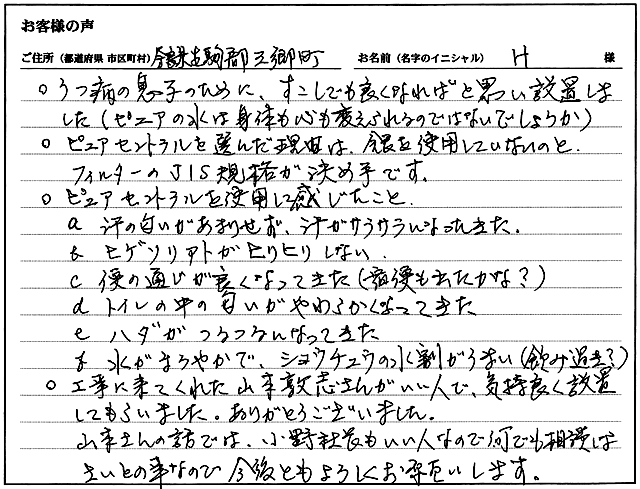 お客様の声
ご住所（都道府県 市区町村） 奈良県生駒郡三郷町 お名前（名字のイニシャル） H 様
○うつ病の息子のために、すこしでも良くなればと思い設置しま
した（ピュアの水は身体も心も変えられるのではないでしょうか）
○ピュアセントラルを選んだ理由は、銀を使用していないのと、
フィルターのJIS規格が決め手です。
○ピュアセントラルを使用して感じたこと.
a 汗の匂いがあまりせず、汗がサラサラになってきた。
b ヒゲソリアトがヒリヒリしない.
c 便の通じが良くなってきた（宿便も出たかな？）
d トイレの中の匂いがやわらかくなってきた
e ハダがつるつるになってきた
f 水がまろやかで、ショウチュウの水割がうまい（飲み過ぎ？）
○工事に来てくれた山本敦志さんがいい人で、気持良く設置
してもらいました。ありがとうございました。
山本さんの話では、小野社長もいい人なので何でも相談は
さいとの事なので今後ともよろしくお願いします。